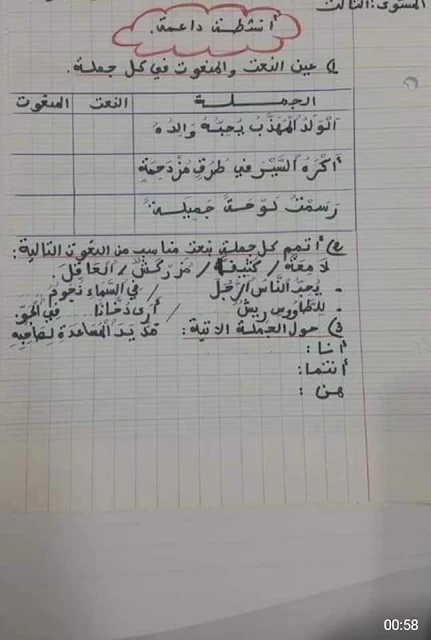 المستوى: الثالث
أنشطة داعمة.
1) عين النعت والمنعوت في كل جملة.
الجملة النعت المنعوت
الولد المهذب يحبه والده
أكره السير في طرق مزدحمة
رسمت لوحة جميلة.
2) أتمم كل جملة بنعت مناسب من النعوت التالية:
لامعة / كثيفا / مزركش / العاقل.
- يحب الناس الرجل / في السماء نجوم
- للطاووس ريش / أرى دخانا في الجو.
3) حول الجملة الآتية: مد يد المساعدة لصاحبه
أنا:
أنتما:
هن:
00:58